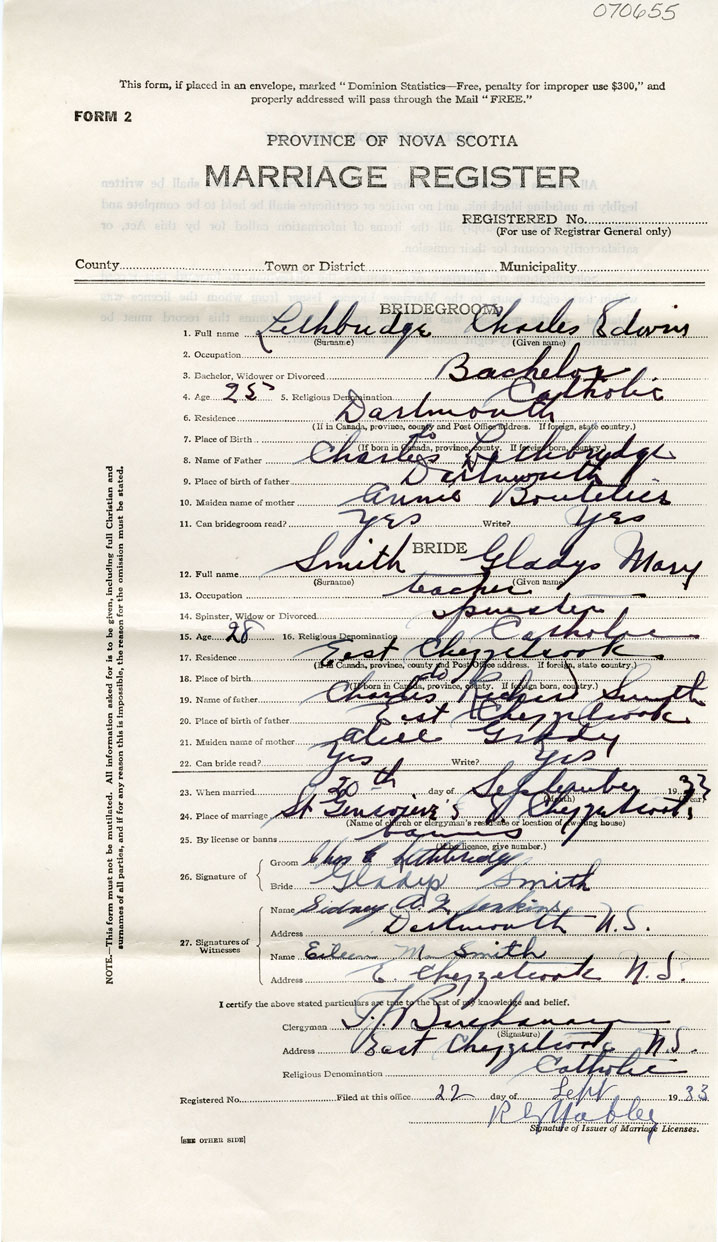 070655
This form, if placed in an envelope, marked "Dominion Statistics—Free, penalty for improper use $300," and
properly addressed will pass through the Mail "FREE."
FORM 2
PROVINCE OF NOVA SCOTIA
MARRIAGE REGISTER
REGISTERED No.
(For use of Registrar General only)
County Town or District Municipality
BRIDEGROOM
1. Full name Lethbridge Charles Edwin
(Surname) (Given name)
2. Occupation
3. Bachelor, Widower or Divorced Bachelor
4. Age 25 5. Religious Denomination Catholic
6. Residence Dartmouth
(If in Canada, province, county and Post Office address. If foreign, state country.)
7. Place of Birth do
(If born in Canada, province, county. If foreign born, country.)
8. Name of Father Charles Lethbridge
9. Place of birth of father Dartmouth
10. Maiden name of mother Annie Boutilier
11. Can bridegroom read? Yes Write? Yes
BRIDE
12. Full name Smith Gladys Mary
(Surname) (Given name)
13. Occupation teacher
14. Spinster, Widow or Divorced Spinster
15. Age 28 16. Religious Denomination Catholic
17. Residence East Chezzetcook
(If in Canada, province, county and Post Office address. If foreign, state country.)
18. Place of birth do
(If born in Canada, province, county. If foreign born, country.)
19. Name of father Charles Smith
20. Place of birth of father East Chezzetcook
21. Maiden name of mother Alice
22. Can bride read? Yes Write? Yes
23. When married 20th day of September 1933
(Month) (Year)
24. Place of marriage St E Chezzetcook
(Name of church or clergyman's residence or location of dwelling house)
25. By license or banns banns
(If by licence, give number.)
26. Signature of
Groom Chas E Lethbridge
Bride Gladys Smith
27. Signatures of
Witnesses
Name Sidney A. Jenkins
Address Dartmouth N.S.
Name Eileen M. Smith
Address E. Chezzetcook N.S.
I certify the above stated particulars are true to the best of my knowledge and belief.
Clergyman Buchanan
(Signature)
Address East Chezzetcook N.S.
Religious Denomination Catholic
Registered No. Filed at this office 22 day of Sept 1933
Signature of Issuer of Marriage Licenses.
[SEE OTHER SIDE]
NOTE.—This form must not be mutilated. All information asked for is to be given, including full Christian and
surnames of all parties, and if for any reason this is impossible, the reason for the omission must be stated.